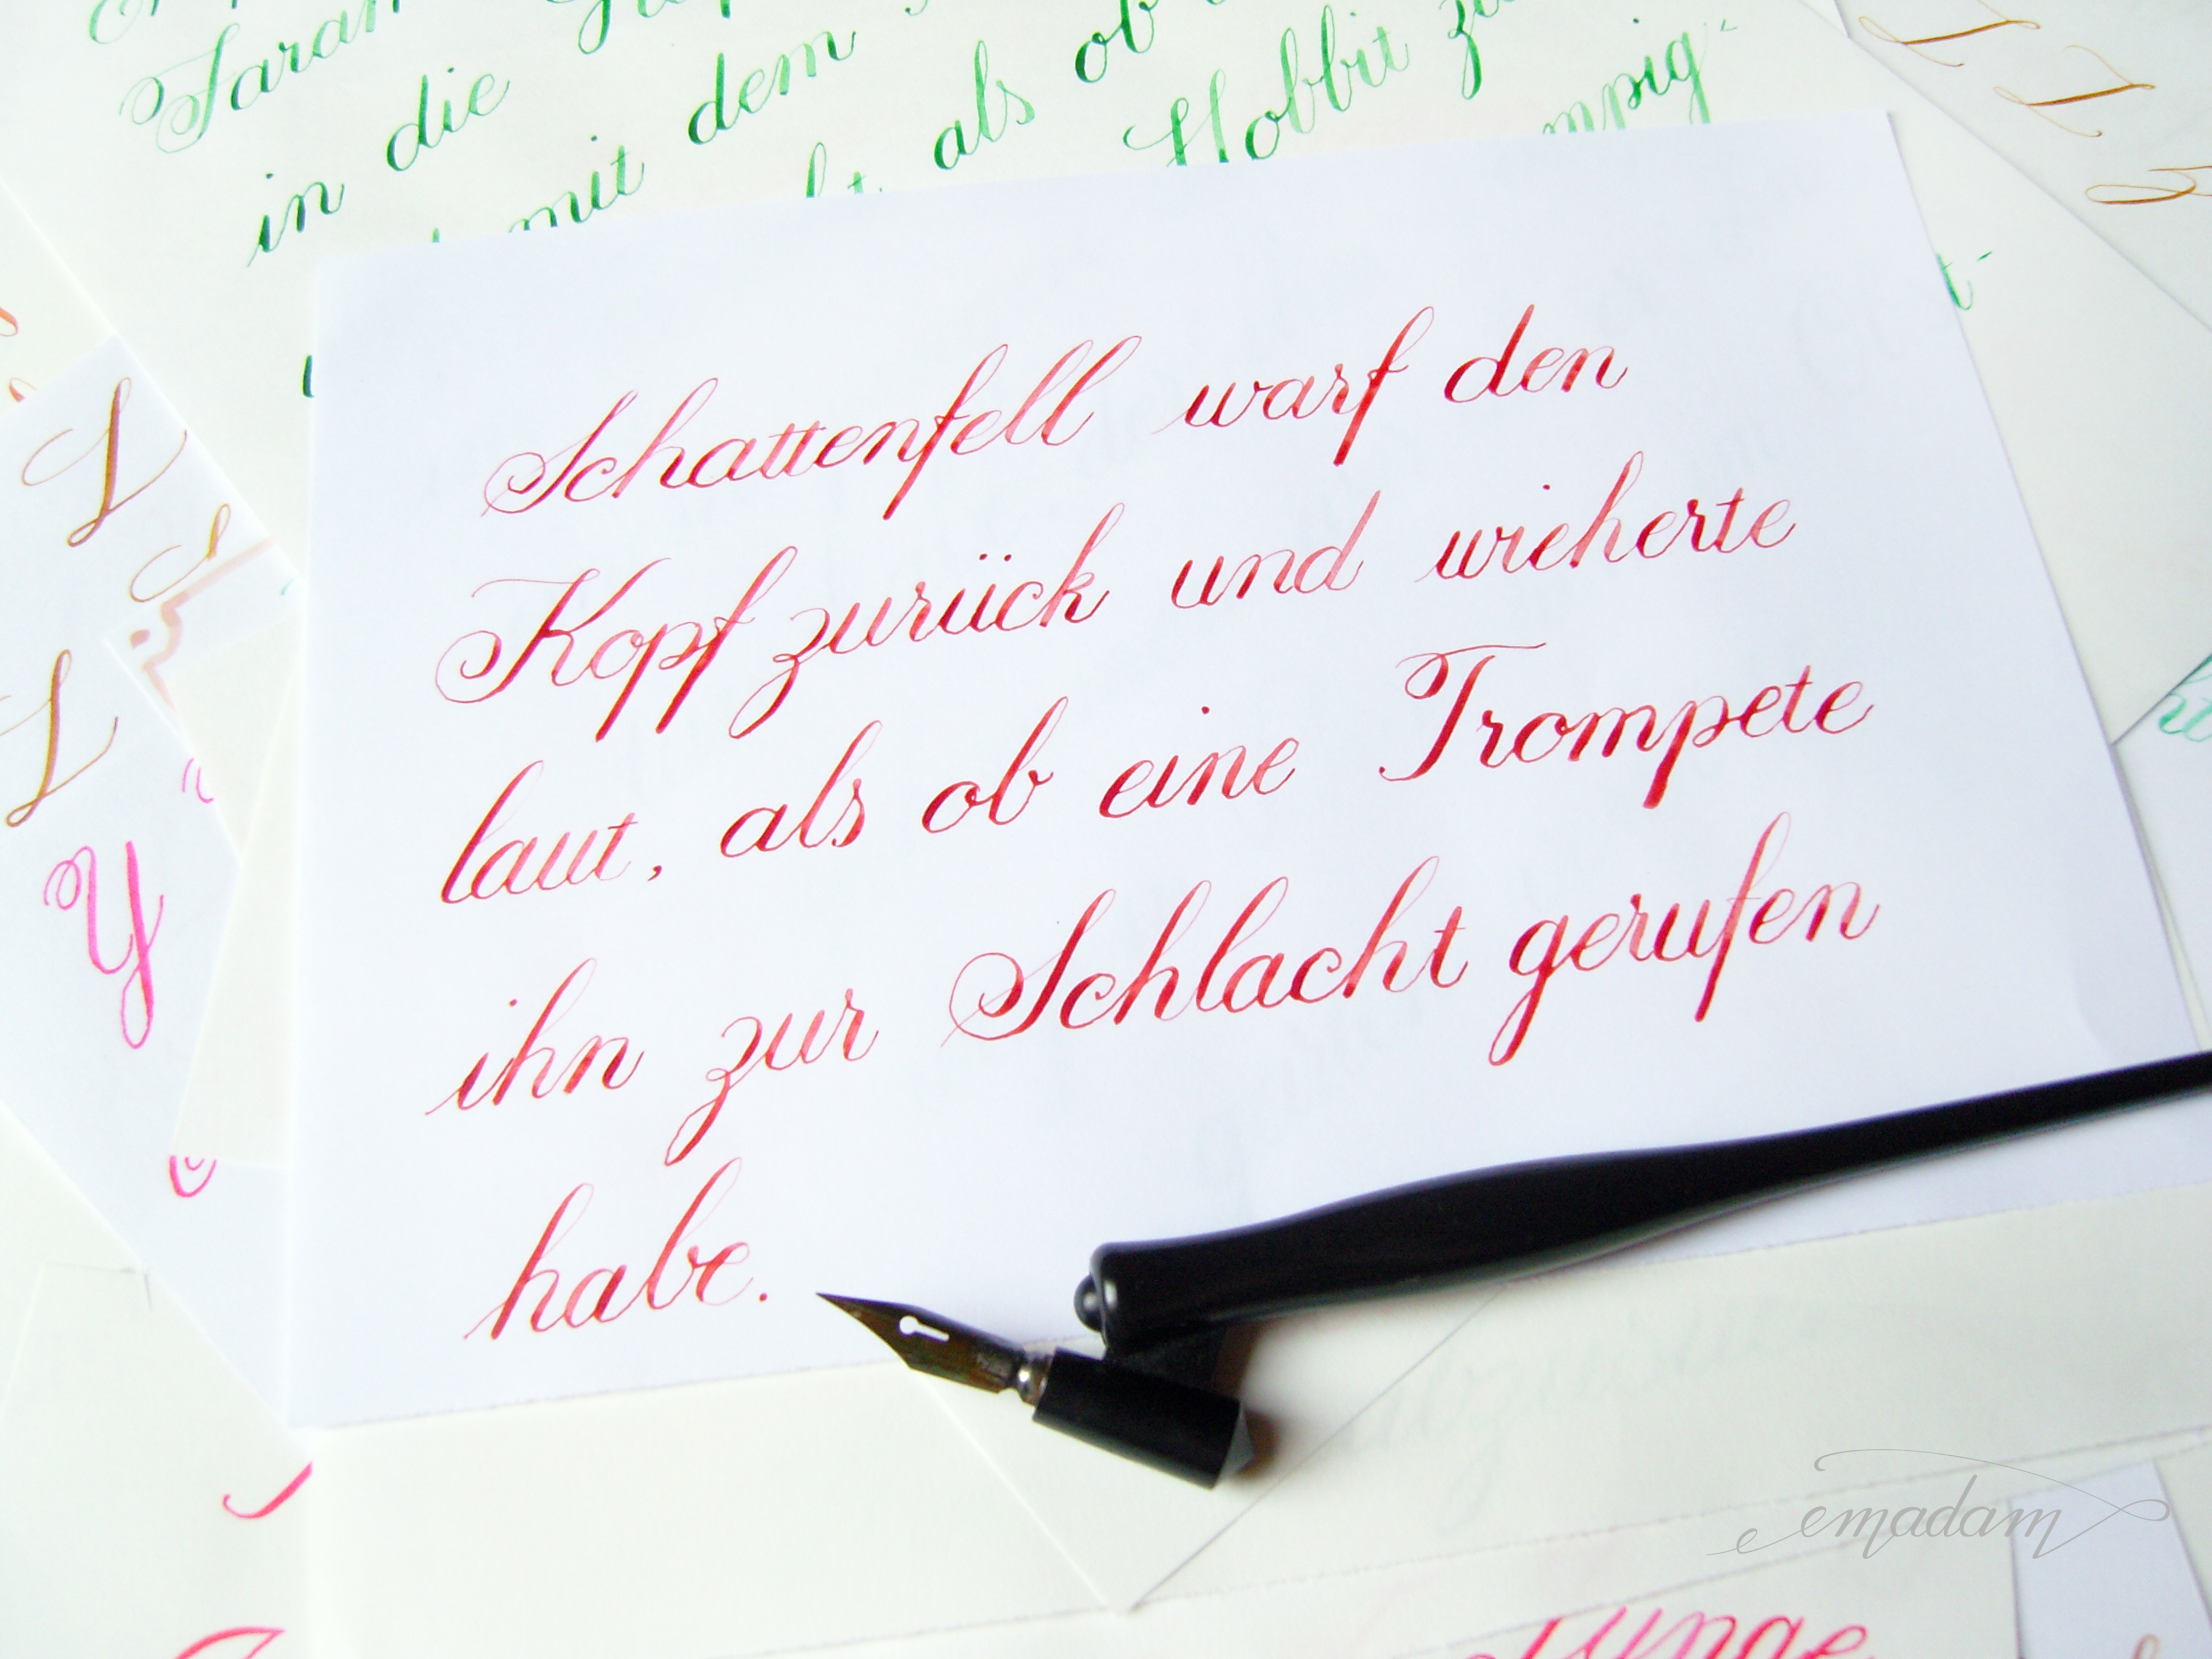 in die
mit dem
als ob
Hobbit
Schattenfell warf den
Kopf zurück und wieherte
laut, als ob eine Trompete
ihn zur Schlacht gerufen
habe.
L
L
Y
emadam